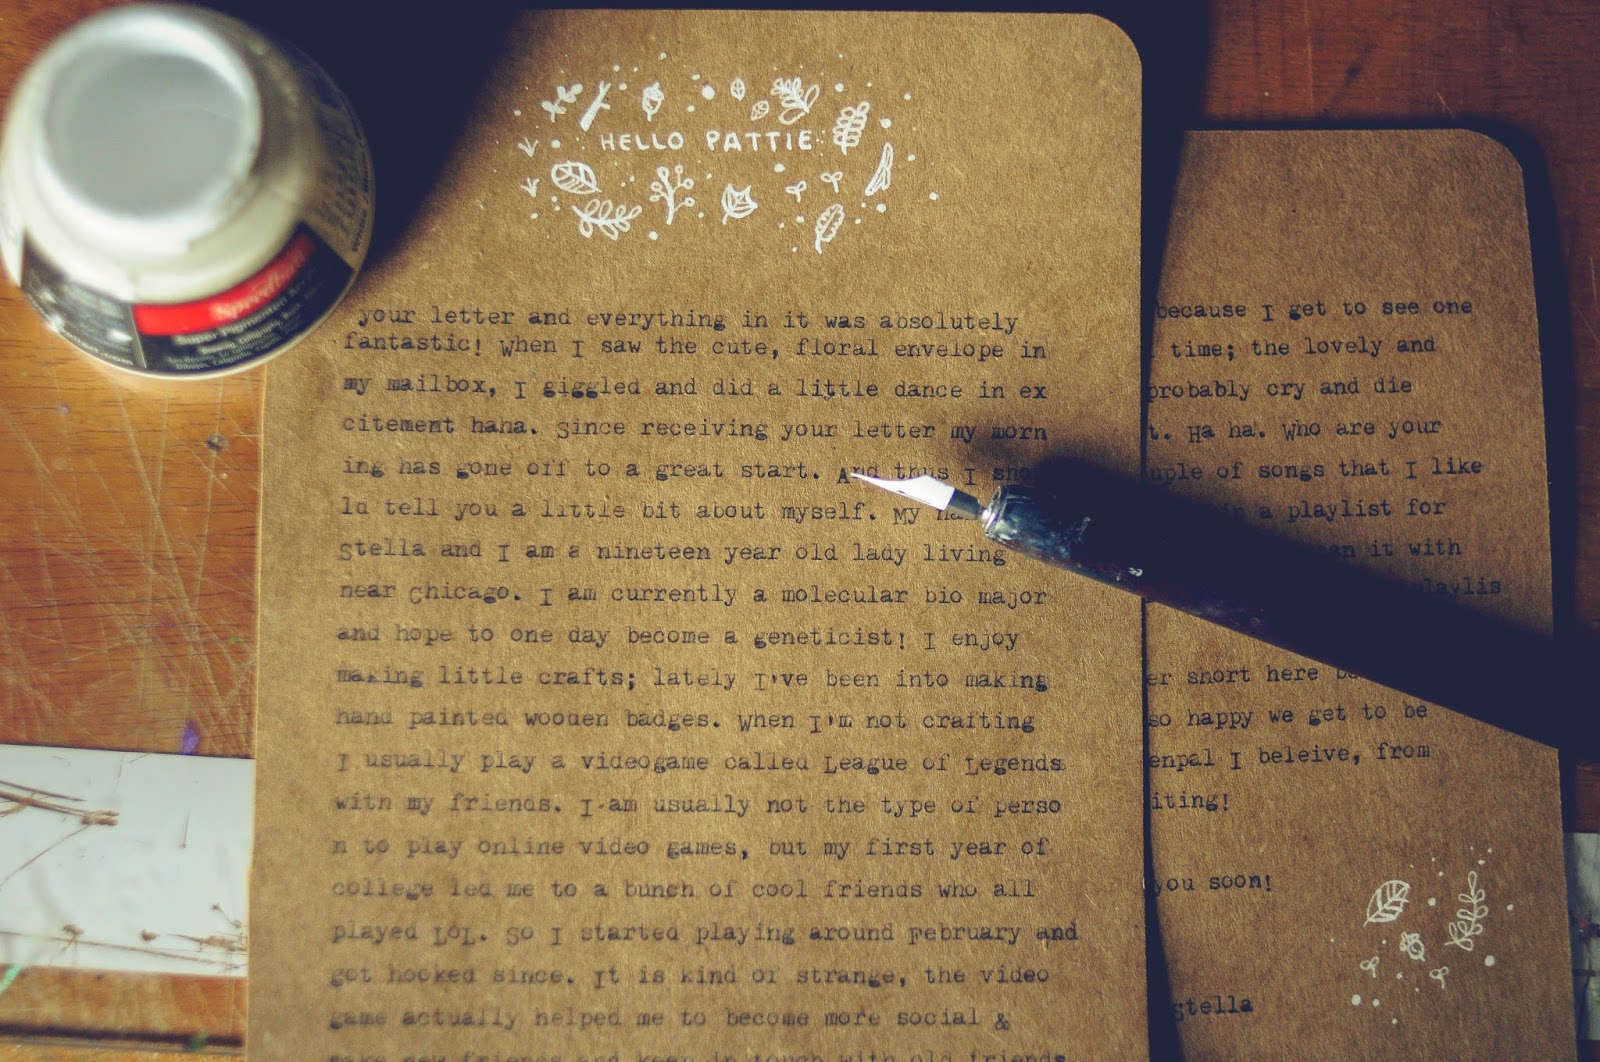 Speedball
Super Pigmented Acrylic
HELLO PATTIE
your letter and everything in it was absolutely
fantastic! When I saw the cute, floral envelope in
my mailbox, I giggled and did a little dance in ex
citement haha. Since receiving your letter my morn
ing has gone off to a great start. And thus I shou
ld tell you a little bit about myself. My
Stella and I am a nineteen year old lady living
near Chicago. I am currently a molecular bio major
and hope to one day become a geneticist! I enjoy
making little crafts; lately I've been into making
hand painted wooden badges. When I'm not crafting
I usually play a videogame called League of Legends
with my friends. I am usually not the type of perso
n to play online video games, but my first year of
college led me to a bunch of cool friends who all
played LoL. So I started playing around February and
got hooked since. It is kind of strange, the video
game actually helped me to become more social &
make new friends and keep in touch with old friends
because I get to see one
time; the lovely and
probably cry and die
t. Ha ha. Who are your
uple of songs that I like
in a playlist for
it with
playlis
er short here
so happy we get to be
enpal I beleive, from
iting!
you soon!
Stella